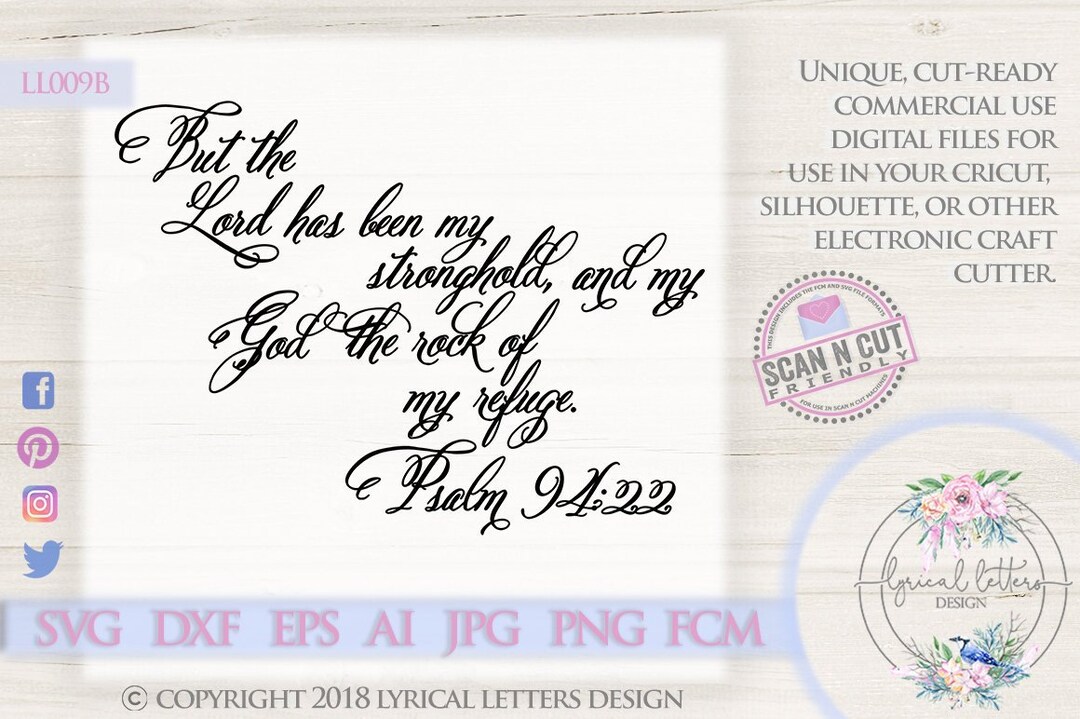 LL009B
But the
Lord has been my
stronghold, and my
God the rock of
my refuge.
Psalm 94:22
UNIQUE, CUT-READY
COMMERCIAL USE
DIGITAL FILES FOR
USE IN YOUR CRICUT,
SILHOUETTE, OR OTHER
ELECTRONIC CRAFT
CUTTER.
THIS DESIGN INCLUDES THE FCM AND SVG FILE FORMATS
SCAN N CUT
FRIENDLY
FOR USE IN SCAN N CUT MACHINES
lyrical letters
DESIGN
SVG DXF EPS AI JPG PNG FCM
© COPYRIGHT 2018 LYRICAL LETTERS DESIGN